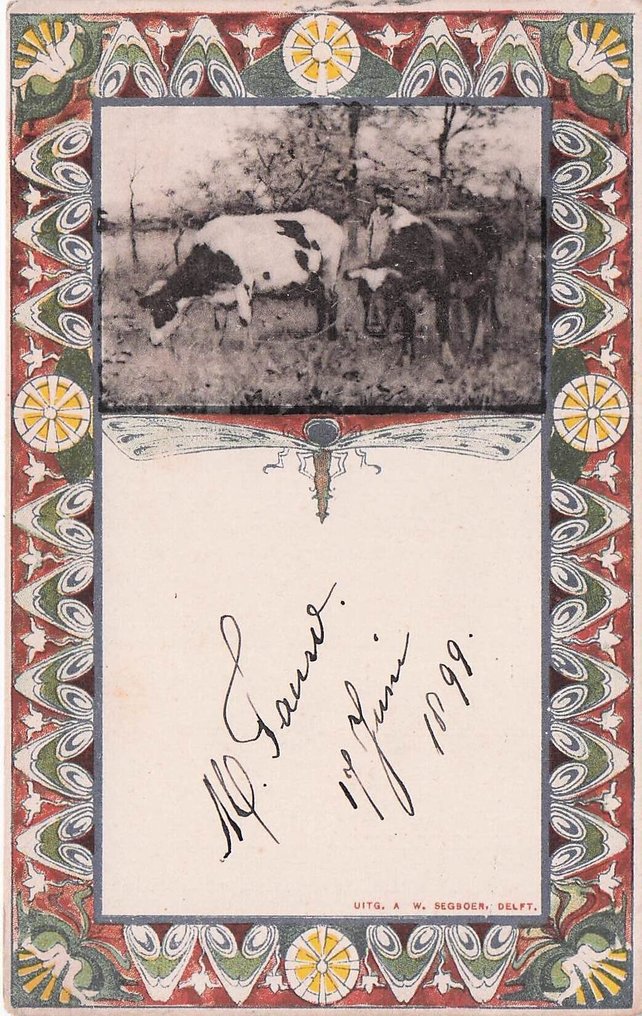 M.
17 Juni
1899.
UITG. A. W. SEGBOER, DELFT.